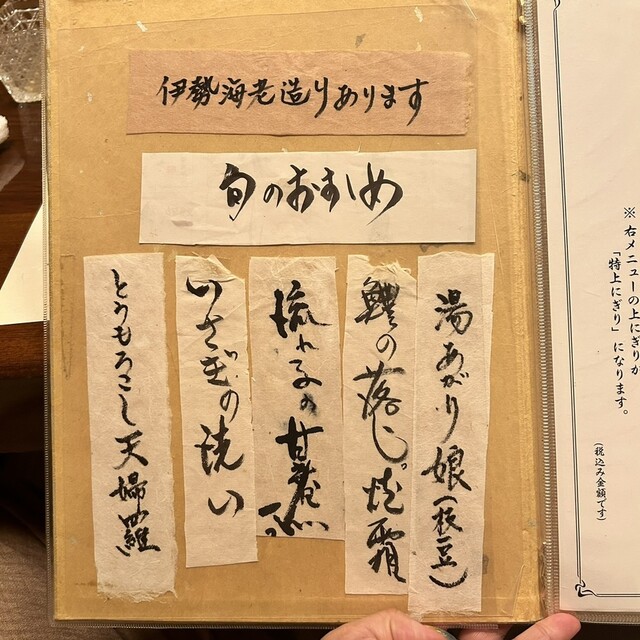 伊勢海老造りあります
旬のおすすめ
湯あがり娘(枝豆)
鱧の落し。焼霜
流れ子の甘煮
いさぎの洗い
とうもろこし天婦羅
※右メニューの上にぎりが
「特上にぎり」になります。
(税込み金額です)